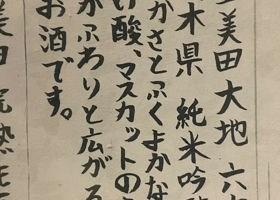 美田大地 六
木県 純米吟
かさとふくよかな
い酸、マスカットの
がふわりと広がる
お酒です。
美田